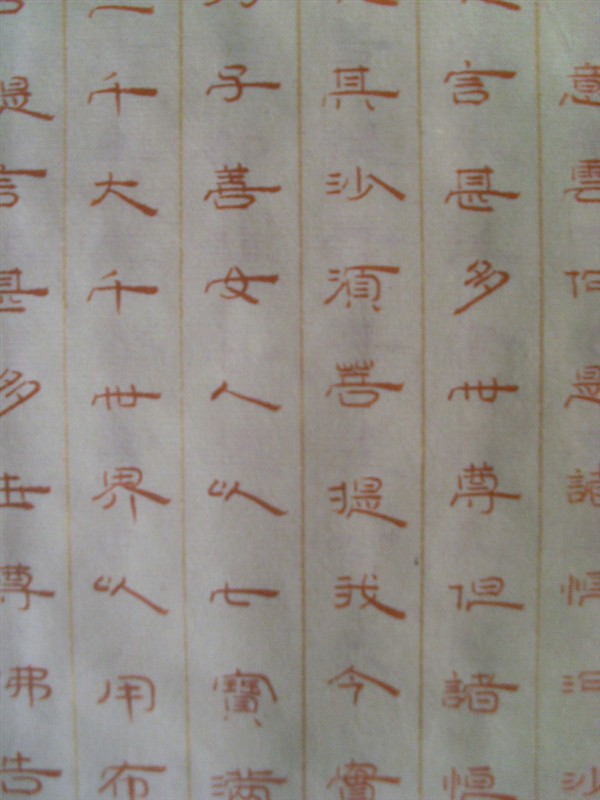 意雲何是諸恒河沙
言甚多世尊但諸恒
其沙湏菩提我今實
子善女人以七寶滿
千大千世界以用布
提言甚多世尊佛告